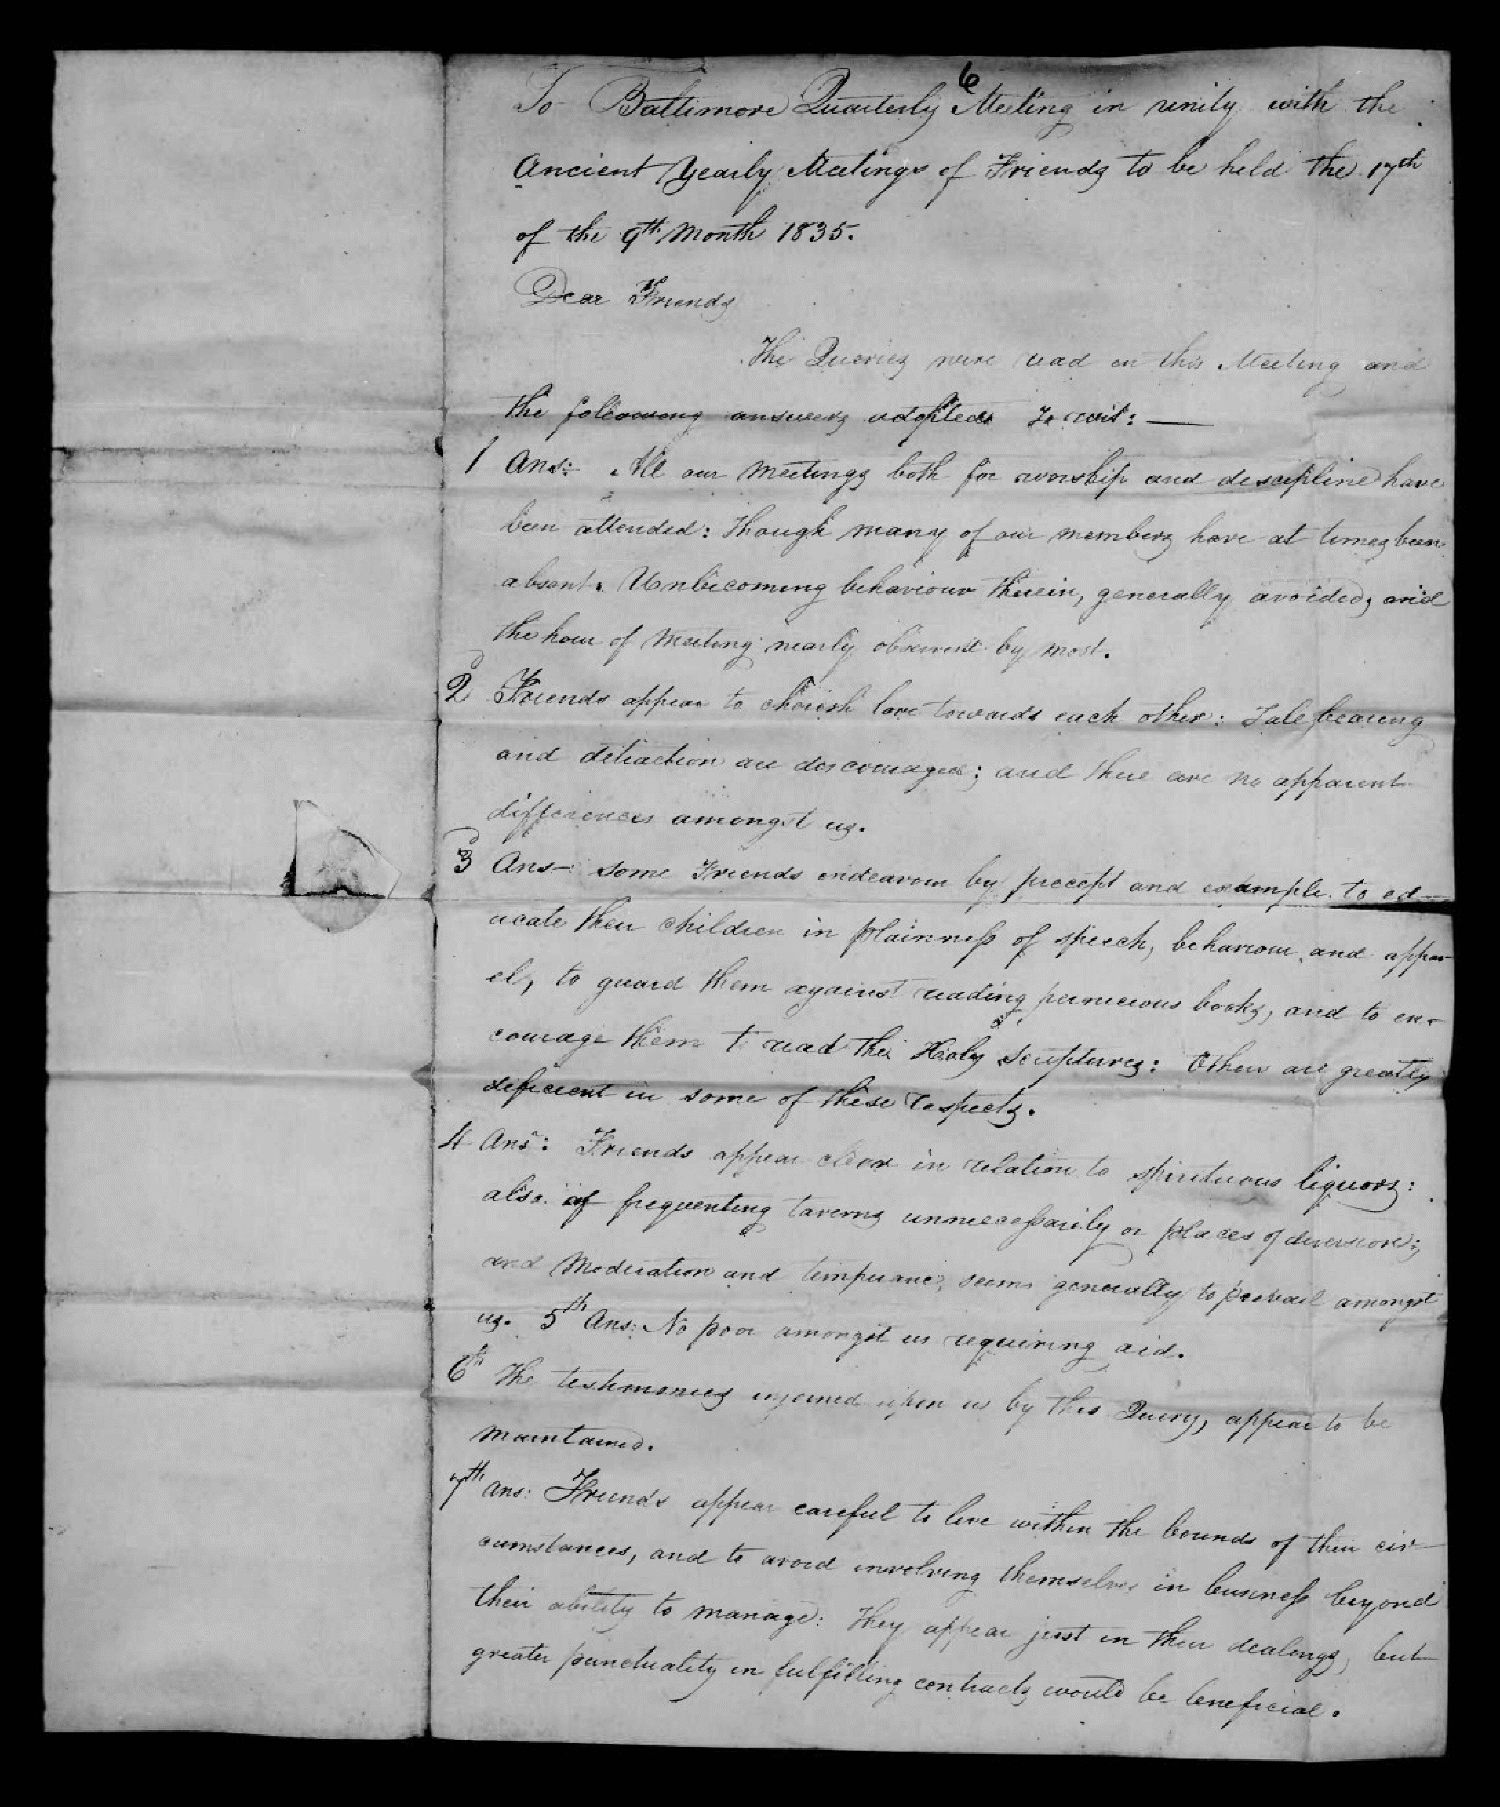 6
To Baltimore Quarterly Meeting in unity with the
Ancient Yearly Meetings of Friends to be held the 17th
of the 9th Month 1835.
Dear Friends
The Queries were read in this Meeting and
the following answers adopted To wit: —
1 Ans: All our meetings both for worship and descipline have
been attended: though many of our members have at times been
absent. Unbecoming behaviour therein, generally avoided, and
the hour of meeting nearly observed by most.
2 Friends appear to cherish love towards each other: Tale bearing
and detraction are discouraged; and there are no apparent
differences amongst us.
3 Ans— some Friends endeavour by precept and example to ed—
ucate their children in plainness of speech, behaviour and appar
el, to guard them against reading pernicious books, and to en-
courage them to read the Holy scriptures: Others are greatly
deficient in some of these respects.
4 Ans: Friends appear clear in relation to spirituous liquors:
also of frequenting taverns unnecessarily or places of diversion;
and Moderation and temperance seems generally to prevail amongst
us. 5th Ans: No poor amongst us requiring aid.
6th The testimonies enjoined upon us by this Query, appear to be
maintained.
7th Ans: Friends appear careful to live within the bounds of their cir—
cumstances, and to avoid involving themselves in business beyond
their ability to manage: They appear just in their dealings, but
greater punctuality in fulfilling contracts would be beneficial.